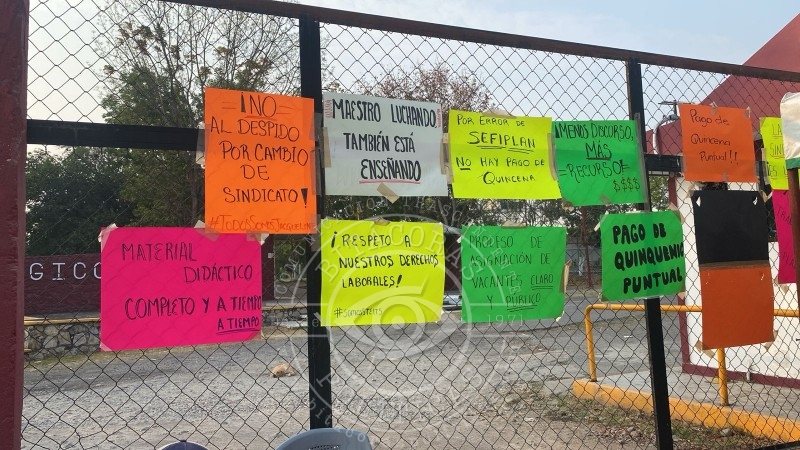 ¡NO
AL DESPIDO
POR CAMBIO
DE
SINDICATO!
#TODOSSOMOSJACQUELINE
MAESTRO LUCHANDO
TAMBIÉN ESTÁ
ENSEÑANDO
POR ERROR DE
SEFIPLAN
NO HAY PAGO DE
QUINCENA
¡MENOS DISCURSO,
MÁS
RECURSO!
$$$$
Pago de
Quincena
Puntual!!
MATERIAL
DIDÁCTICO
COMPLETO Y A TIEMPO
A TIEMPO
¡RESPETO A
NUESTROS DERECHOS
LABORALES!
PROCESO DE
ASIGNACIÓN DE
VACANTES CLARO
Y PÚBLICO
PAGO DE
QUINQUENIO
PUNTUAL
GICO
1971